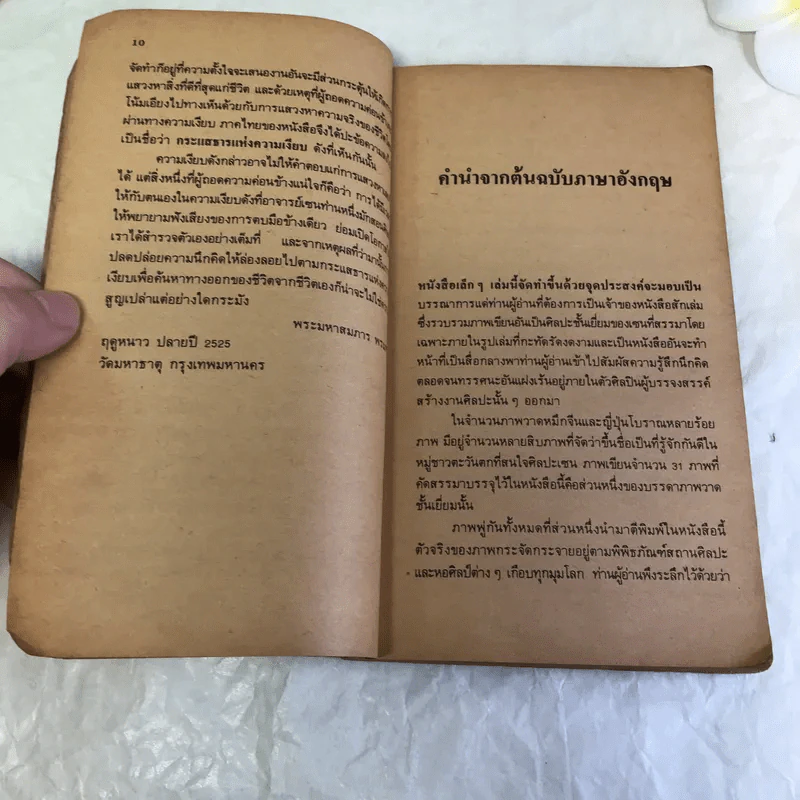 10
จัดทำก็อยู่ที่ความตั้งใจจะเสนองานอันจะมีส่วนกระตุ้นให้เกิด
แสวงหาสิ่งที่ดีที่สุดแก่ชีวิต และด้วยเหตุที่ผู้ถอดความค่อนข้าง
โน้มเอียงไปทางเห็นด้วยกับการแสวงหาความจริงของชีวิต
ผ่านทางความเงียบ ภาคไทยของหนังสือจึงได้ปะข้อความ
เป็นชื่อว่า กระแสธารแห่งความเงียบ ดังที่เห็นกันนั้น
ความเงียบดังกล่าวอาจไม่ให้คำตอบแก่การแสวงหา
ได้ แต่สิ่งหนึ่งที่ผู้ถอดความค่อนข้างแน่ใจก็คือว่า การได้
ให้กับตนเองในความเงียบดังที่อาจารย์เซนท่านหนึ่งมักสอน
ให้พยายามฟังเสียงของการตบมือข้างเดียว ย่อมเปิดโอกาส
เราได้สำรวจตัวเองอย่างเต็มที่ และจากเหตุผลที่ว่ามานั้น
ปลดปล่อยความนึกคิดให้ล่องลอยไปตามกระแสธารแห่ง
เงียบเพื่อค้นหาทางออกของชีวิตจากชีวิตเองก็น่าจะไม่ใช่
สูญเปล่าแต่อย่างใดกระมัง
พระมหาสมภาร
ฤดูหนาว ปลายปี 2525
วัดมหาธาตุ กรุงเทพมหานคร
คำนำจากต้นฉบับภาษาอังกฤษ
หนังสือเล็ก ๆ เล่มนี้จัดทำขึ้นด้วยจุดประสงค์จะมอบเป็น
บรรณาการแด่ท่านผู้อ่านที่ต้องการเป็นเจ้าของหนังสือสักเล่ม
ซึ่งรวบรวมภาพเขียนอันเป็นศิลปะชั้นเยี่ยมของเซนที่สรรมาโดย
เฉพาะภายในรูปเล่มที่กะทัดรัดงดงามและเป็นหนังสืออันจะทำ
หน้าที่เป็นสื่อกลางพาท่านผู้อ่านเข้าไปสัมผัสความรู้สึกนึกคิด
ตลอดจนทรรศนะอันแฝงเร้นอยู่ภายในตัวศิลปินผู้บรรจงสรรค์
สร้างงานศิลปะนั้น ๆ ออกมา
ในจำนวนภาพวาดหมึกจีนและญี่ปุ่นโบราณหลายร้อย
ภาพ มีอยู่จำนวนหลายสิบภาพที่จัดว่าขึ้นชื่อเป็นที่รู้จักกันดีใน
หมู่ชาวตะวันตกที่สนใจศิลปะเซน ภาพเขียนจำนวน 31 ภาพที่
คัดสรรมาบรรจุไว้ในหนังสือนี้คือส่วนหนึ่งของบรรดาภาพวาด
ชั้นเยี่ยมนั้น
ภาพพู่กันทั้งหมดที่ส่วนหนึ่งนำมาตีพิมพ์ในหนังสือนี้
ตัวจริงของภาพกระจัดกระจายอยู่ตามพิพิธภัณฑ์สถานศิลปะ
และหอศิลป์ต่าง ๆ เกือบทุกมุมโลก ท่านผู้อ่านพึงระลึกไว้ด้วยว่า